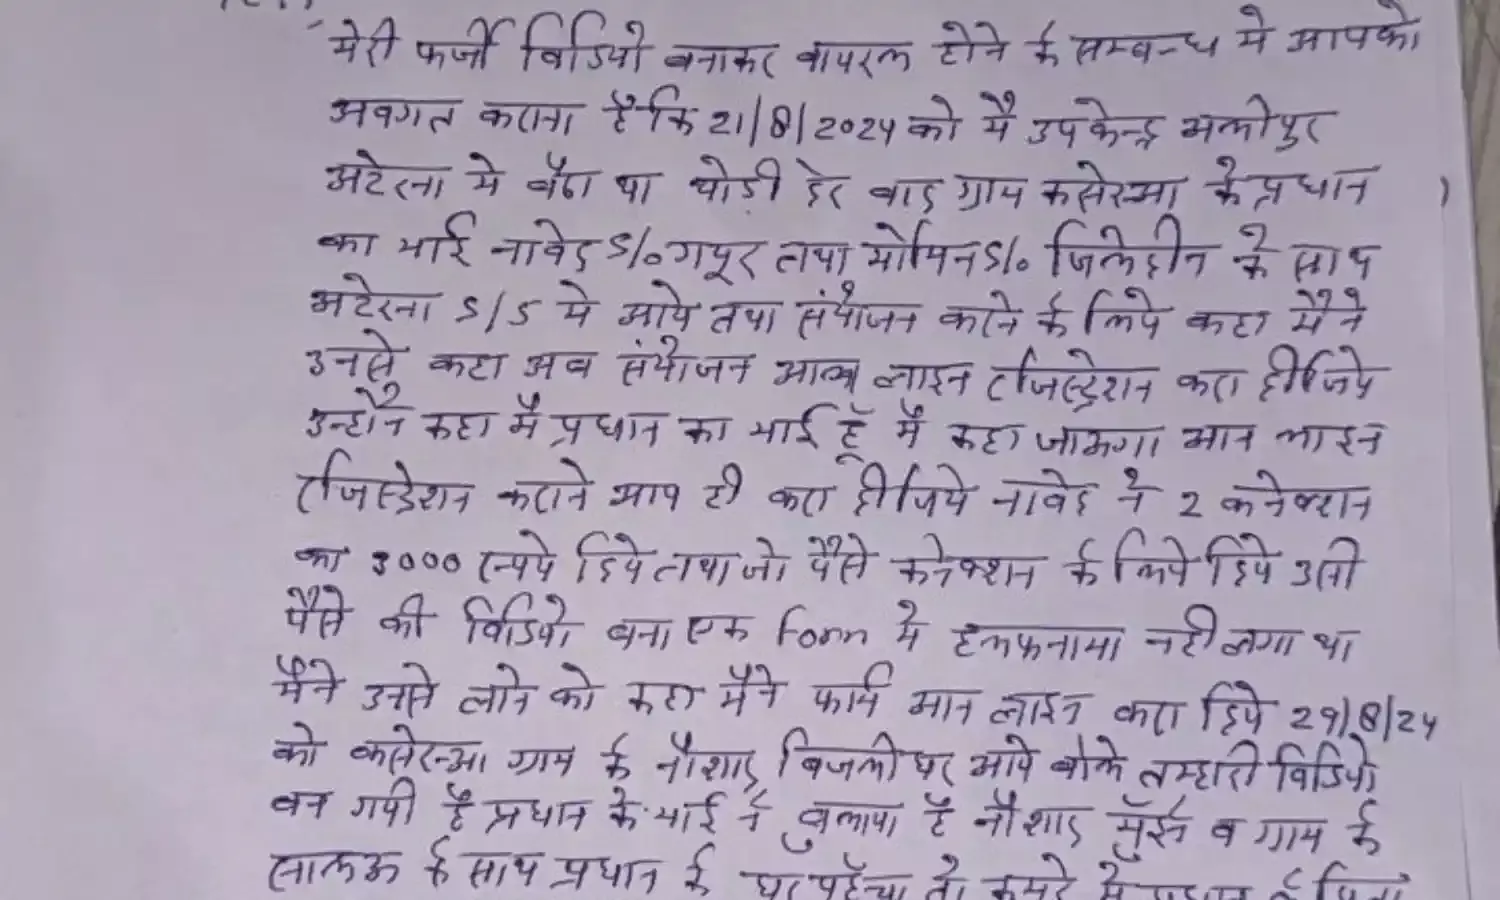 मेरी फर्जी विडियो बनाकर वायरल होने के सम्बन्ध मे आपको
अवगत कराना है कि 21/8/2024 को मैं उपकेन्द्र अलीपुर
अटेरना मे बैठा था थोडी देर बाद ग्राम कसेरवा के प्रधान
का भाई नावेद S/o गफूर तथा मोमिन S/o जिलेदीन के साथ
अटेरना S/S मे आये तथा संयोजन करने के लिये कहा मैने
उनसे कहा अब संयोजन लाइन रजिस्ट्रेशन करा दीजिये
उन्होंने कहा मै प्रधान का भाई हूँ मै कहा जाऊगा आन लाइन
रजिस्ट्रेशन कराने आप ही करा दीजिये नावेद ने 2 कनेक्शन
का 3000 रूपये दिये तथा जो पैसे कनेक्शन के लिये दिये उसी
पैसे की विडियो बना एक form मे हलफनामा नही लगा था
मैने उनसे लाने को कहा मैने फार्म आन लाइन करा दिये 29/8/24
को कसेरवा ग्राम के नौशाद बिजलीघर आये बोले तुम्हारी विडियो
बन गयी है प्रधान के भाई ने बुलाया है नौशाद व ग्राम के
के साथ प्रधान के घर पहुँचा तो कमरे मे प्रधान के पिता